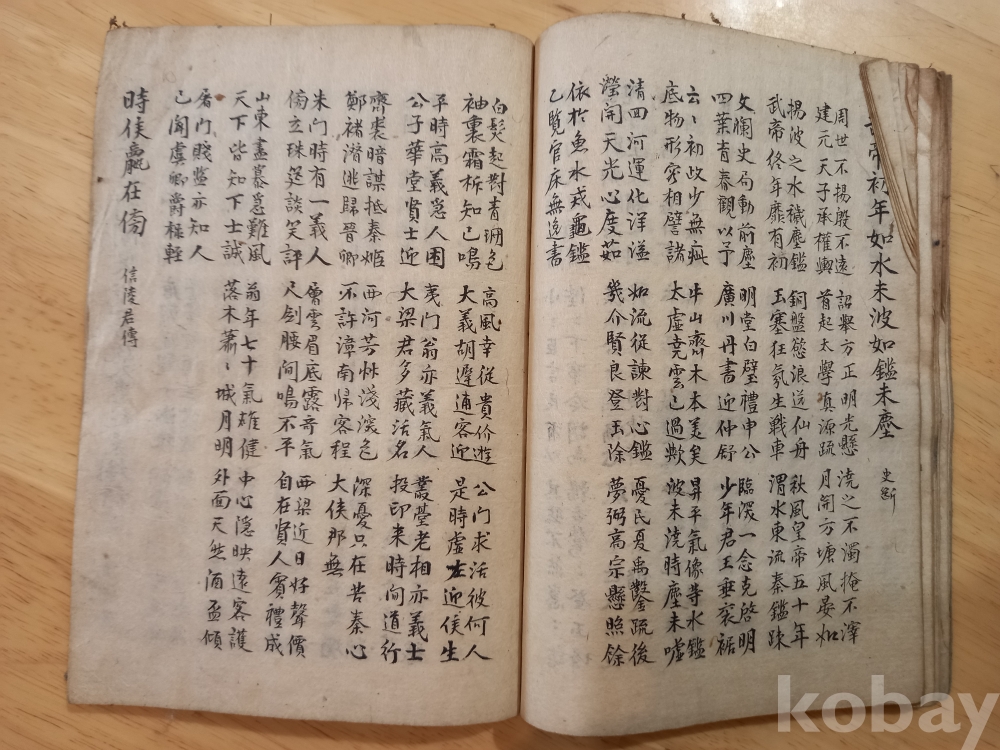 帝初年如水未波如鑑未塵 史斷
周世不揚殷不遠 詔擧方正明光懸 澆之不濁掩不滓
建元天子承權輿 首起太學真源疏 月開方塘風晏如
楊波之水穢塵鑑 銅盤慾浪送仙舟 秋風皇帝五十年
武帝終年靡有初 玉塞狂氛生戰車 渭水東流秦鑑疎
文瀾史局動前塵 明堂白璧禮申公 臨深一念克啓明
四葉青春觀以予 廣川丹書迎仲舒 少年君王垂裒裾
云〻初政少無疵 牛山齊木本美矣 昇平氣像等水鑑
底物形容相譬諸 太虛竟雲已過歟 波未澆時塵未噓
清四河運化洋溢 如流從諫對心鑑 憂民憂禹鑿疏後
瑩開天光心度茹 幾介賢良登玉除 夢弼高宗懸照餘
依於魚水戒龜鑑
乙覽官床無逸書
白髮起對青珊色 高風幸從貴价遊 公門求活彼何人
袖裏霜柝知已鳴 大義胡遲逋客迎 是時虛左迎侯生
平時高義急人困 夷門翁亦義氣人 叢臺老相亦義士
公子華堂賢士迎 大梁君多藏活名 投印来時間道行
齊裘暗謀抵秦姬 西河芳艸淺深色 深憂只在苦秦心
鄭褚潛逃歸晉卿 不許漳南帰客程 大侯那無
朱門時有一義人 層雲眉底露奇氣 西梁近日好聲價
倚立珠筵談笑評 尺劍腰間鳴不平 自在賓人賓禮成
山東盡慕急難風 翁年七十氣雄健 中心隱映遠客護
天下皆知下士誠 落木蕭〻城月明 外面天然酒盃傾
屠門賤監亦知人
已聞虞卿爵極輕
時侯嬴在傍 信陵君傳
kobay